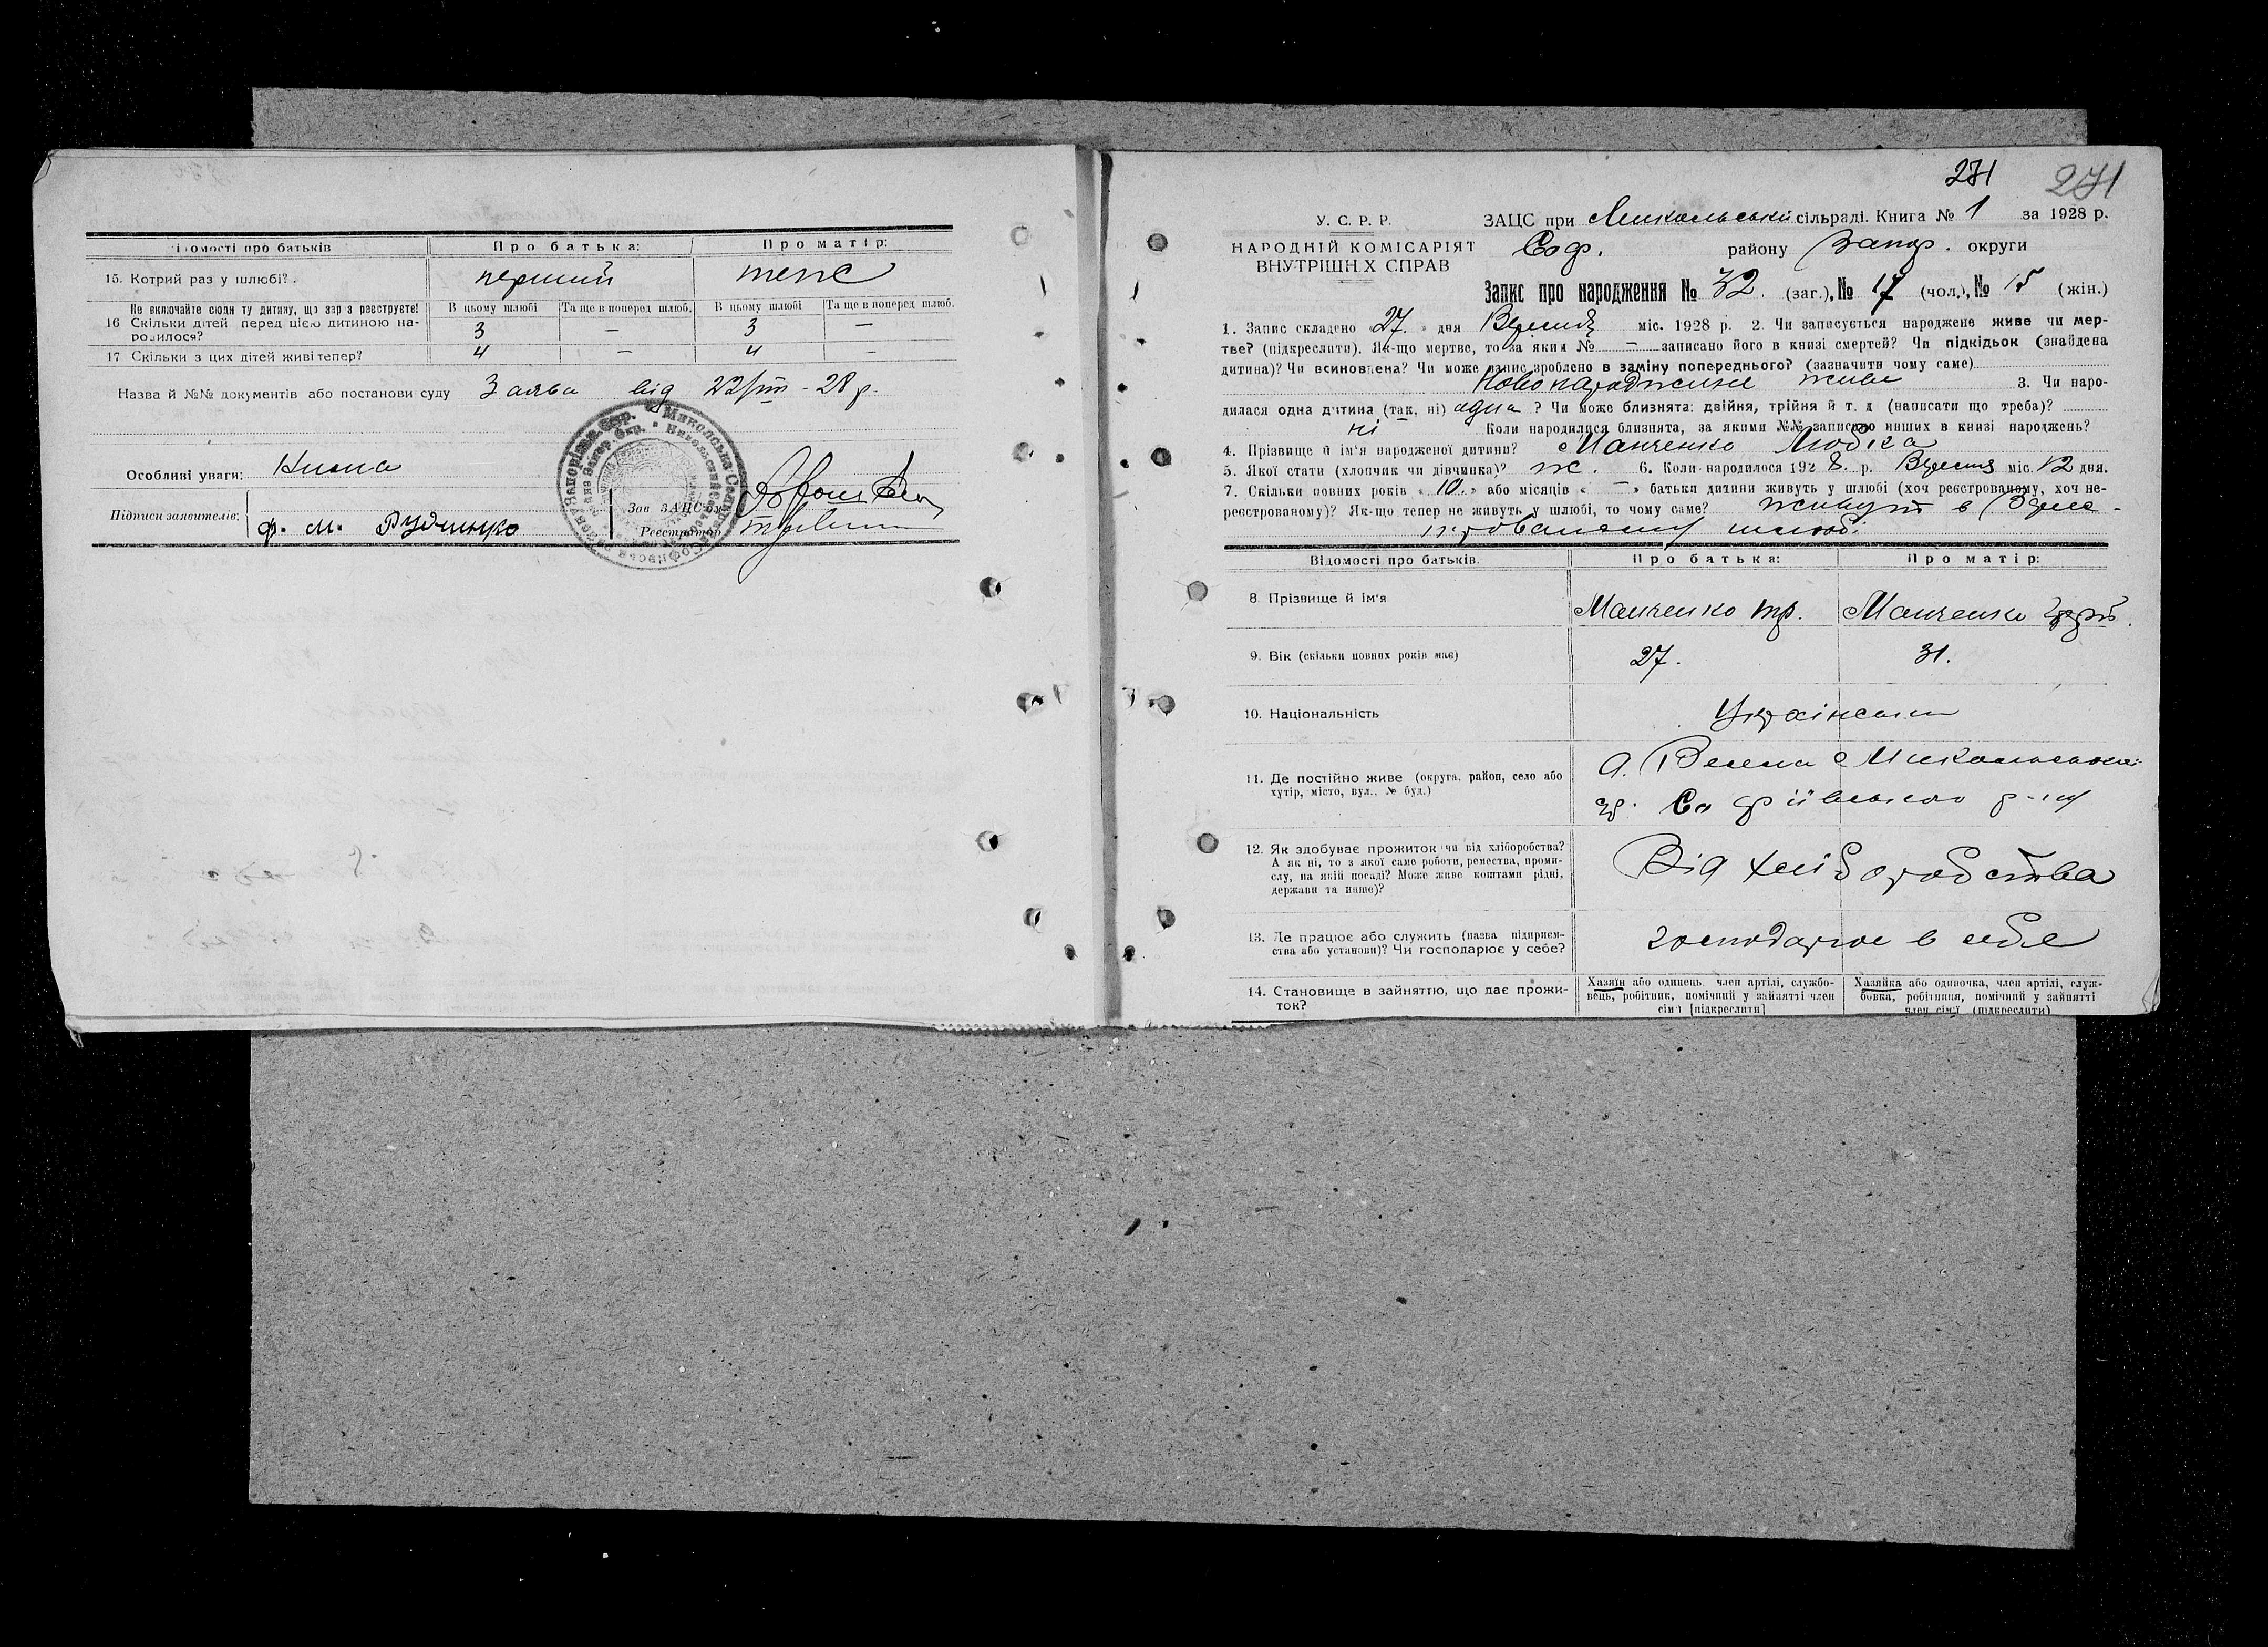 Відомости про батьків
Про батька:
Про матір:
15. Котрий раз у шлюбі?
перший
теж
Не включайте сюди ту дитину, що зар з реєструєте!
16 Скільки дітей перед цією дитиною на-
родилося?
В цьому шлюбі
Та ще в поперед шлюб.
В цьому шлюбі
Та ще в поперед шлюб.
3
—
3
—
17 Скільки з цих дітей живі тепер?
4
—
4
—
Назва й №№ документів або постанови суду Заява від 22/III - 28 р.
Особливі уваги: Нима
Підписи заявителів: Ф. М. Рудченко
Зав ЗАЦС'ом
Реєстратор
271 271
У. С. Р. Р.
НАРОДНІЙ КОМІСАРІЯТ
ВНУТРІШНІХ СПРАВ
ЗАЦС при Микольській сільраді. Книга № 1 за 1928 р.
Соф. району Запор. округи
Запис про народження № 32. (заг.), № 17 (чол.), № 15 (жін.)
1. Запис складено „27." дня Вересня міс. 1928 р. 2. Чи записується народжене живе чи мер-
тве? (підкреслити). Як-що мертве, то за яким № — записано його в книзі смертей? Чи підкідьок (знайдена
дитина)? Чи всиновлена? Чи може запис зроблено в заміну попереднього? (зазначити чому саме)
Новонароджине живе 3. Чи наро-
дилася одна дитина (так, ні) одна ? Чи може близнята: двійня, трійня й т. д (написати що треба)?
ні Коли народилися близнята, за якими №№ записано инших в книзі народжень?
4. Прізвище й ім'я народженої дитини? Манченко Любка
5. Якої стати (хлопчик чи дівчинка)? ж. 6. Коли народилося 1928. р. Вересня міс. 12 дня.
7. Скільки повних років „10." або місяців „—" батьки дитини живуть у шлюбі (хоч реєстрованому, хоч не-
реєстрованому)? Як-що тепер не живуть у шлюбі, то чому саме? живут в
шлюбі
Відомості про батьків.
Про батька:
Про матір:
8. Прізвище й ім'я
Манченко Тр.
Манченко
9. Вік (скільки повних років має)
27.
31.
10. Національність
11. Де постійно живе (округа, район, село або
хутір, місто, вул., № буд.)
Софіївського р-ну
12. Як здобуває прожиток чи від хліборобства?
А як ні, то з якої саме роботи, ремества, проми-
слу, на якій посаді? Може живе коштами рідні,
держави та инше)?
Від хліборобства
13. Де працює або служить (назва підприєм-
ства або установи)? Чи господарює у себе?
господарює в себе
14. Становище в зайняттю, що дає прожи-
ток?
Хазяїн або одинець, член артілі, службо-
вець, робітник, помічний у зайнятті член
сім'ї [підкреслити]
Хазяйка або одиночка, член артілі, служ-
бовка, робітниця, помічний у зайнятті
член сім'ї (підкреслити)